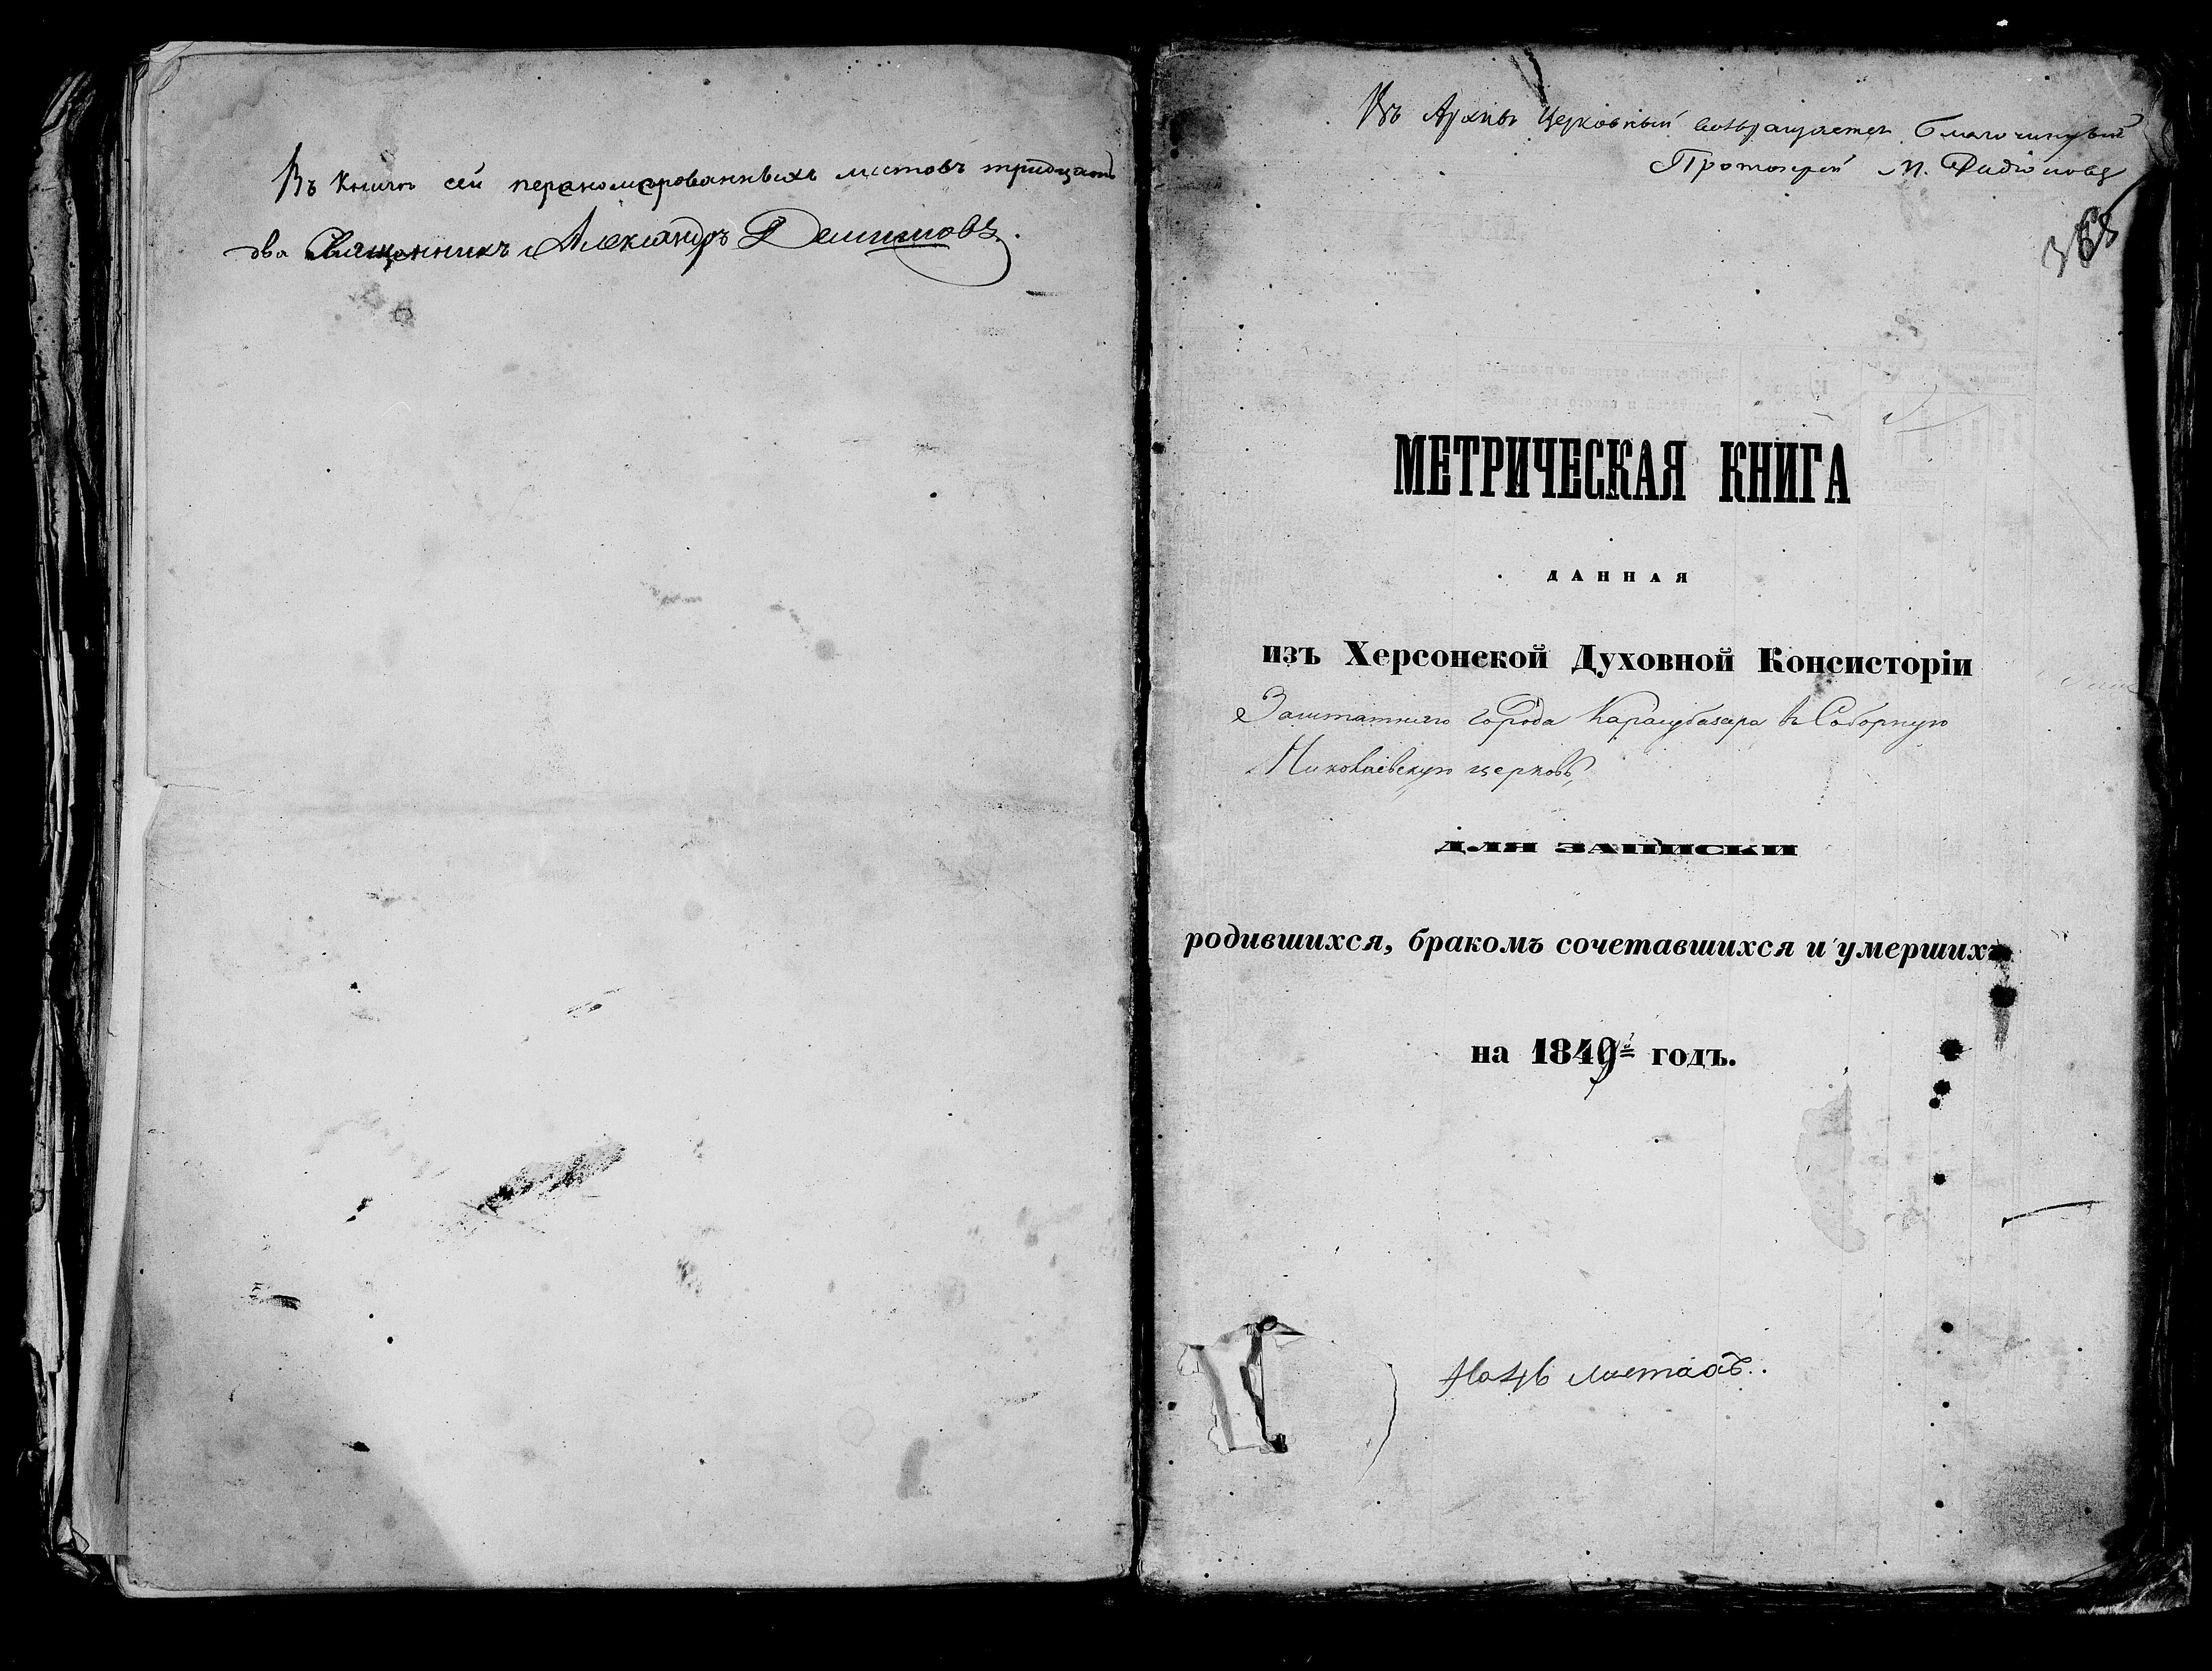 Въ книгѣ сей перекомерованныхъ листовъ тридцать
два Священникъ Александръ
Въ Архивъ Церковный возвращается Благочинный
Протоіерей М. Родіоновъ
МЕТРИЧЕСКАЯ КНИГА
ДАННАЯ
изъ Херсонской Духовной Консисторіи
Заштатнаго города Карасубазара въ Соборную
Николаевскую церковь,
ДЛЯ ЗАПИСКИ
родившихся, бракомъ сочетавшихся и умершихъ
на 1849й годъ.
На 46 листахъ.